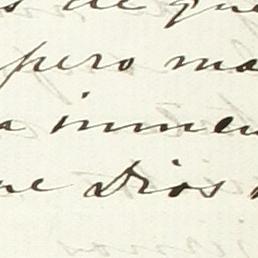 s de qu
pero ma
a inmen
ue Dios